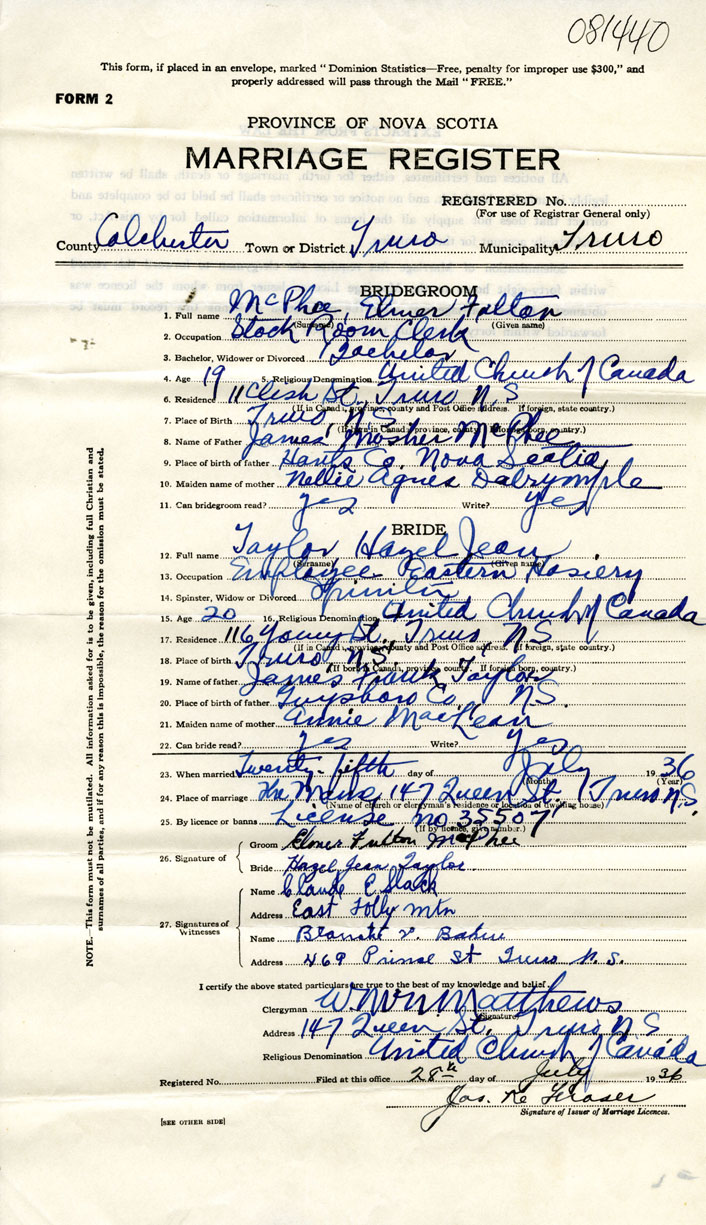 081440
This form, if placed in an envelope, marked "Dominion Statistics—Free, penalty for improper use $300," and
properly addressed will pass through the Mail "FREE."
FORM 2
PROVINCE OF NOVA SCOTIA
MARRIAGE REGISTER
REGISTERED No.
(For use of Registrar General only)
County Colchester Town or District Truro Municipality Truro
BRIDEGROOM
1. Full name McPhee, Elmer Fulton
(Surname) (Given name)
2. Occupation Stock Room Clerk
3. Bachelor, Widower or Divorced Bachelor
4. Age 19 5. Religious Denomination United Church of Canada
6. Residence 11 St. Truro N.S
(If in Canada, province, county and Post Office address. If foreign, state country.)
7. Place of Birth Truro, N.S.
(If born in Canada, province, county. If foreign born, country.)
8. Name of Father James Mosher McPhee
9. Place of birth of father Hants Co. Nova Scotia
10. Maiden name of mother Nellie Agnes Dalrymple
11. Can bridegroom read? yes Write? yes
BRIDE
12. Full name Taylor Hazel Jean
(Surname) (Given name)
13. Occupation Employee Eastern Hosiery
14. Spinster, Widow or Divorced Spinster
15. Age 20 16. Religious Denomination United Church of Canada
17. Residence 116 Young St. Truro N.S
(If in Canada, province, county and Post Office address. If foreign, state country.)
18. Place of birth Truro, N.S.
(If born in Canada, province, county. If foreign born, country.)
19. Name of father James Frank Taylor
20. Place of birth of father Guysboro Co. N.S.
21. Maiden name of mother Annie MacLean
22. Can bride read? yes Write? yes
23. When married Twenty-fifth day of July 1936
(Month) (Year)
24. Place of marriage The Manse 147 Queen St. Truro N.S.
(Name of church or clergyman's residence or location of dwelling house)
25. By licence or banns License no 35507
(If by licence, give number.)
26. Signature of
Groom Elmer Fulton McPhee
Bride Hazel Jean Taylor
27. Signatures of Witnesses
Name Claude E Slack
Address East Folly Mtn
Name Blanche V. Baker
Address 469 Prince St Truro N.S.
I certify the above stated particulars are true to the best of my knowledge and belief.
Clergyman Matthews
(Signature)
Address 147 Queen St. Truro N S
Religious Denomination United Church of Canada
Registered No. Filed at this office 28th day of July 1936
Jos. Fraser
Signature of Issuer of Marriage Licences.
[SEE OTHER SIDE]
NOTE.—This form must not be mutilated. All information asked for is to be given, including full Christian and
surnames of all parties, and if for any reason this is impossible, the reason for the omission must be stated.